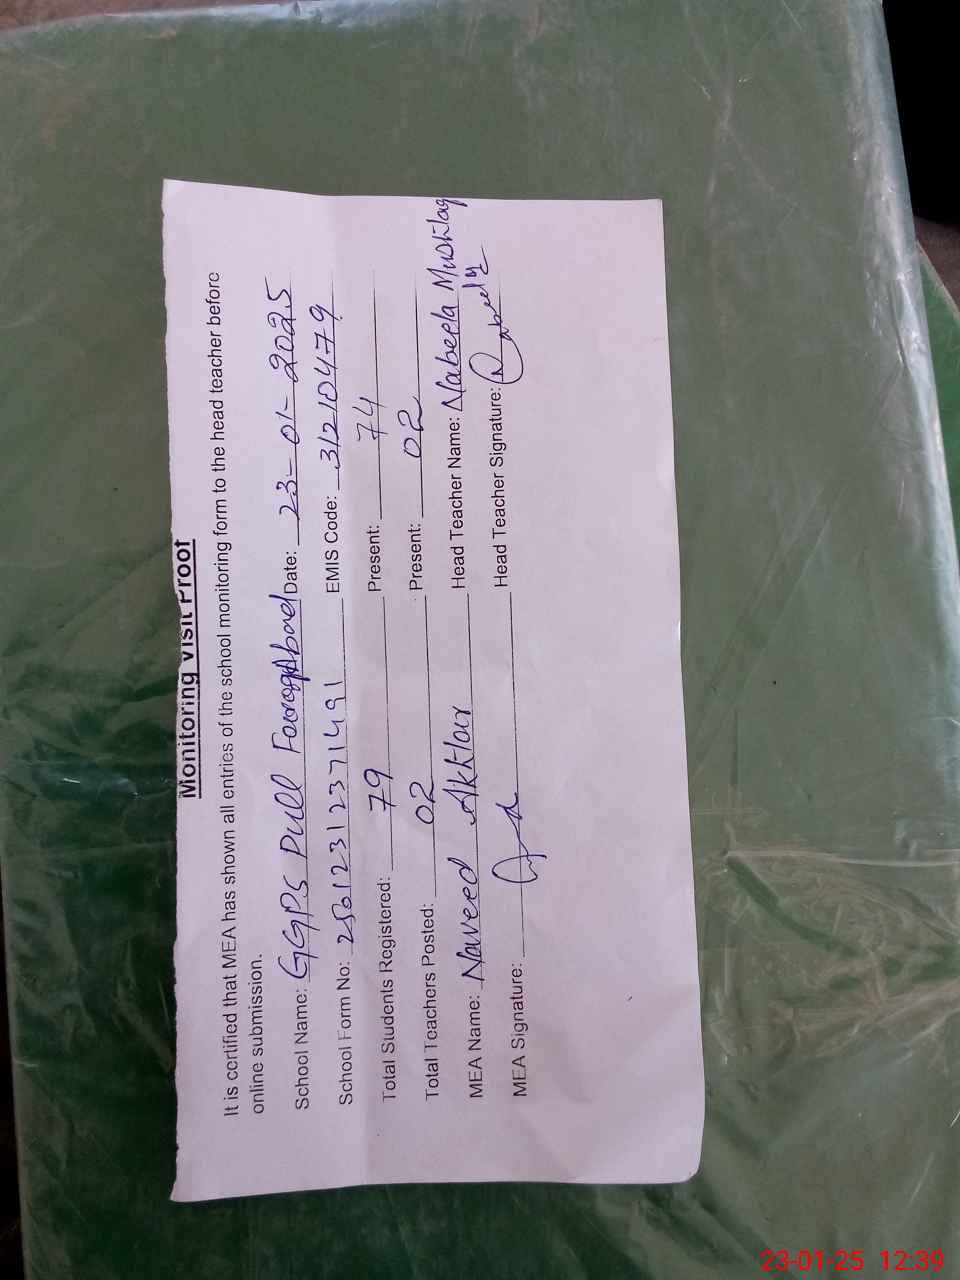 Monitoring Visit Proof
It is certified that MEA has shown all entries of the school monitoring form to the head teacher before
online submission.
School Name: GGPS Pull Farooqabad Date: 23-01-2025
School Form No: 25012312371491 EMIS Code: 31210479
Total Students Registered: 79 Present: 74
Total Teachers Posted: 02 Present: 02
MEA Name: Naveed Akhtar Head Teacher Name: Nabeela Mushtaq
MEA Signature: Head Teacher Signature: Nabeela
23-01-25 12:39